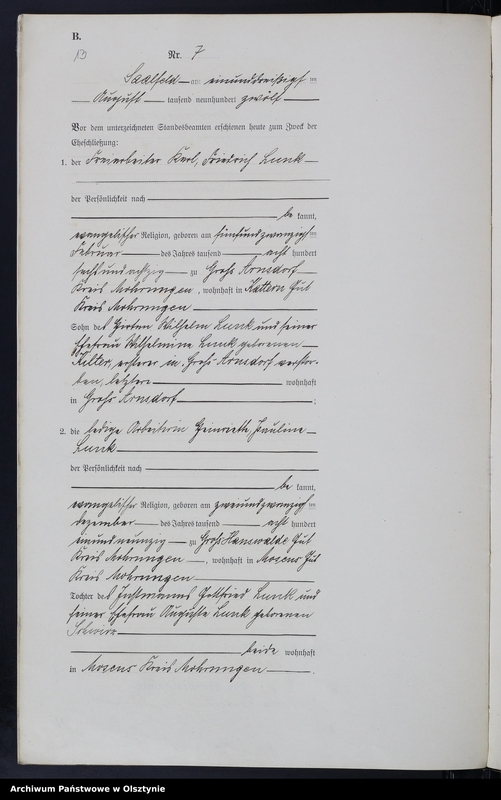 B.
Nr. 7
Saalfeld am einunddreißigsten
August tausend neunhundert zwölf
Vor dem unterzeichneten Standesbeamten erschienen heute zum Zweck der
Eheschließung:
1. der Karl, Friedrich Lunk
der Persönlichkeit nach
be kannt,
evangelischer Religion, geboren am fünfundzwanzigsten
Februar des Jahres tausend acht hundert
sechsundachtzig zu Groß Arnsdorf
Kreis Mohrungen, wohnhaft in Kattern Gut
Kreis Mohrungen
Sohn des Hirten Wilhelm Lunk und seiner
Ehefrau Wilhelmine Lunk geborenen
ersterer in Groß Arnsdorf verstor-
ben, letztere wohnhaft
in Groß Arnsdorf;
2. die ledige Arbeiterin Henriette, Pauline
Lunk
der Persönlichkeit nach
be kannt,
evangelischer Religion, geboren am zweiundzwanzigsten
Dezember des Jahres tausend acht hundert
einundneunzig zu Groß Hanswalde Gut
Kreis Mohrungen, wohnhaft in Mosens Gut
Kreis Mohrungen
Tochter des Instmanns Gottfried Lunk und
seiner Ehefrau Auguste Lunk geborenen
beide wohnhaft
in Mosens Kreis Mohrungen.
Archiwum Państwowe w Olsztynie